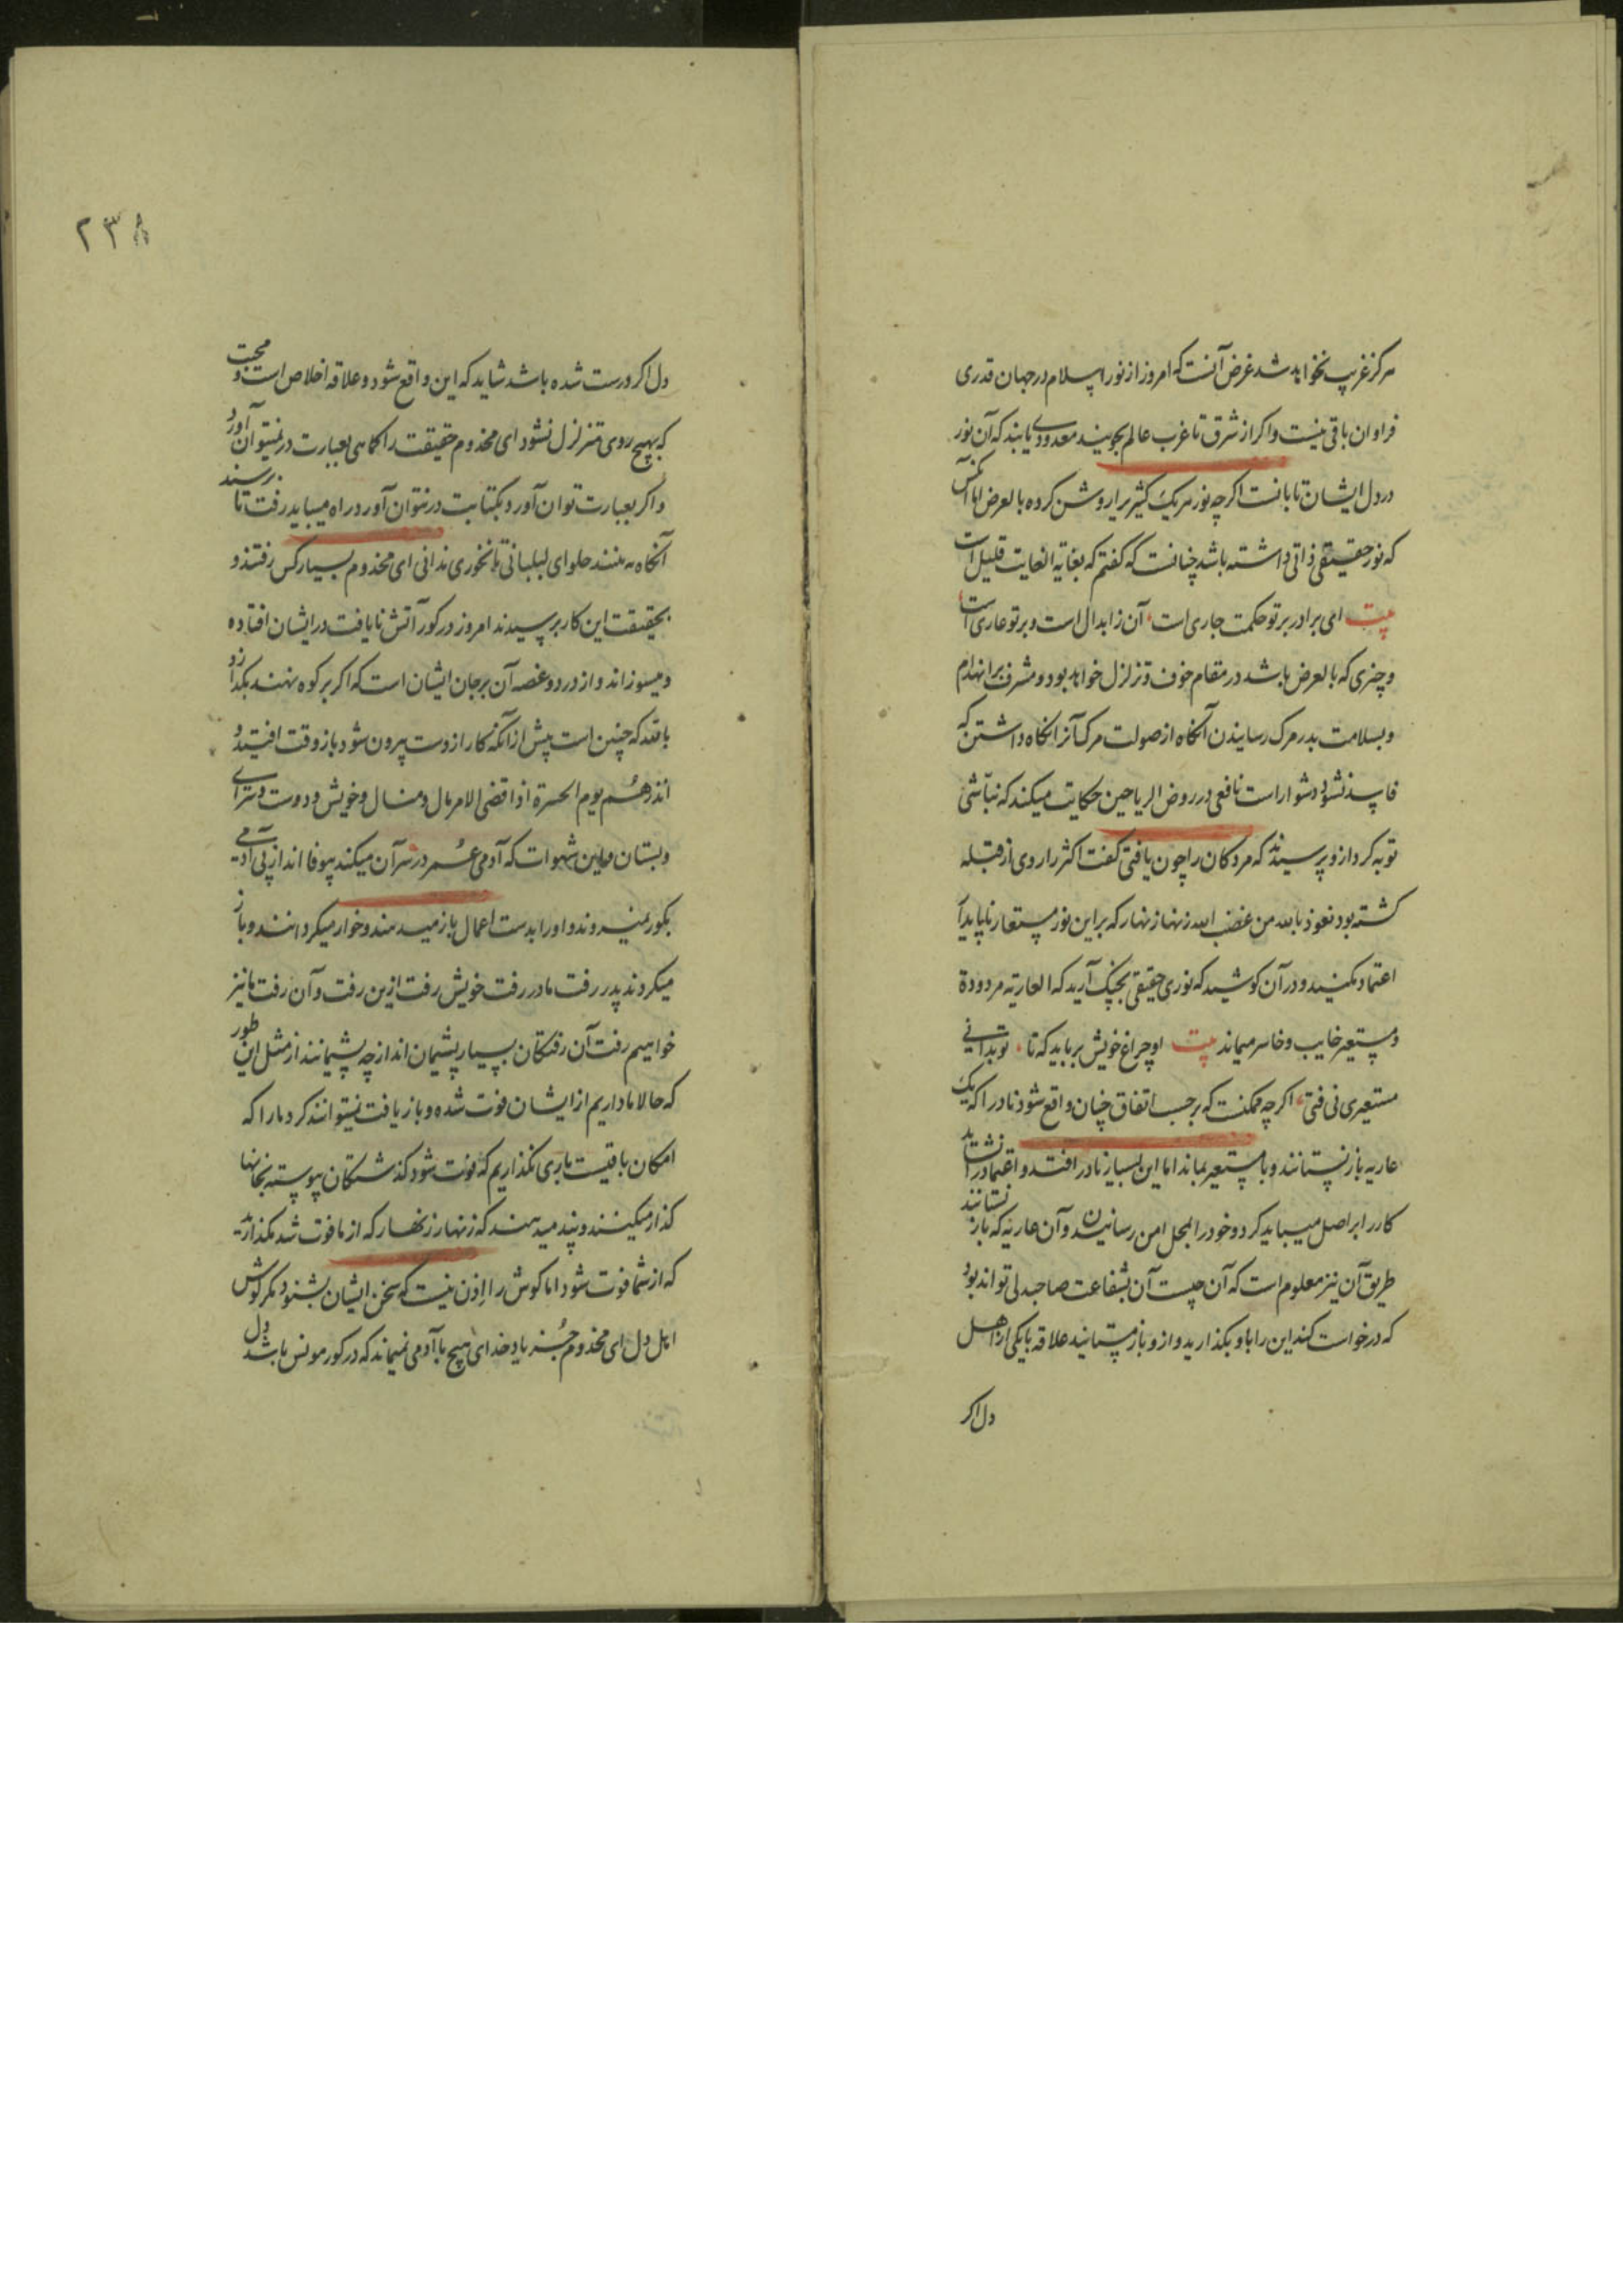 هرکز غریب نخواهد شد غرض آنست که امروز از نور اسلام در جهان قدری
فراوان باقی نیست و اکر از شرق تا غرب عالم بجویند معدودی یابند که آن نور
در دل ایشان تابانست اکرچه نور هر یک کثیر را روشن کرده بالعرض اما آنکس
که نور حقیقی ذاتی داشته باشد چنانست که کفتم که بغایة الغایت قلیل است
بیت ای برادر بر تو حکمت جاری است آن ز ابدال است و بر تو عاری است
و چیزی که بالعرض باشد در مقام خوف و تزلزل خواهد بود و مشرف بر انهدام
و بسلامت بدر مرک رسانیدن آنکاه از صولت مرک آنرا نکاه داشتن که
فاسد نشود دشوار است نافعی در روض الریاحین حکایت میکند که نباشی
توبه کرد از و پرسیدند که مردکان را چون یافتی کفت اکثر را روی از قبله
کشته بود نعوذ بالله من غضب الله زنهار زنهار که بر این نور مستعار ناپایدار
اعتماد مکنید و در آن کوشید که نوری حقیقی بچنک آرید که العاریة مردودة
و مستعیر خایب و خاسر میماند بیت او چراغ خویش برباید که تا تو بدانی
مستعیری نی فتی اکرچه ممکنست که بر حسب اتفاق چنان واقع شود نادرا که یک
عاریه باز نستانند و با مستعیر بماند اما این بسیار نادر افتد و اعتماد را نشاید
کار را بر اصل میباید کرد و خود را بمحل امن رسانیدن و آن عاریه که باز نستانند
طریق آن نیز معلوم است که آن چیست آن بشفاعت صاحبدلی تواند بود
که درخواست کند این را باو بکذارید و ازو باز مستانید علاقه با یکی از اهل
دل اکر
۲۳۸
دل اکر درست شده باشد شاید که این واقع شود و علاقه اخلاص است و محبت
که بهیچ روی متزلزل نشود ای مخدوم حقیقت را کماهی بعبارت در نمیتوان آورد
و اکر بعبارت توان آورد بکتابت در نتوان آورد در راه میباید رفت تا برسند
آنکاه به بینند حلوای لبلبانی تا نخوری ندانی ای مخدوم بسیار کس رفتند و
بحقیقت این کار برسیدند امروز در کور آتش نایافت در ایشان افتاده
و میسوزاند و از درد و غصه آن بر جان ایشان است که اکر بر کوه نهند بکدازد
بافتد که چنین است پیش از آنکه کار از دست بیرون شود باز وقت افتید و
انذرهم یوم الحسرة اذ اقضی الامر مال و منال و خویش و دوست و سرای
و بستان و این شهوات که آدمی عمر در سر آن میکند بیوفا اند از پی آدمی
بکور نمیروند و او را بدست اعمال باز میدهند و خوار میکردانند و باز
میکردند پدر رفت مادر رفت خویش رفت ازین رفت و آن رفت ما نیز
خواهیم رفت آن رفتکان بسیار پشیمان اند از چه پشیمانند از مثل این طور
که حالا ما داریم از ایشان فوت شده و باز یافت نمیتوانند کرد ما را که
امکان باقیست باری نکذاریم که فوت شود کذشتکان پیوسته بخانها
کذار میکنند و پند میدهند که زنهار زنهار که از ما فوت شد مکذارید
که از شما فوت شود اما کوش را اذن نیست که سخن ایشان بشنود مکر کوش
اهل دل ای مخدوم جز یاد خدای هیچ با آدمی نمیماند که در کور مونس باشد دل